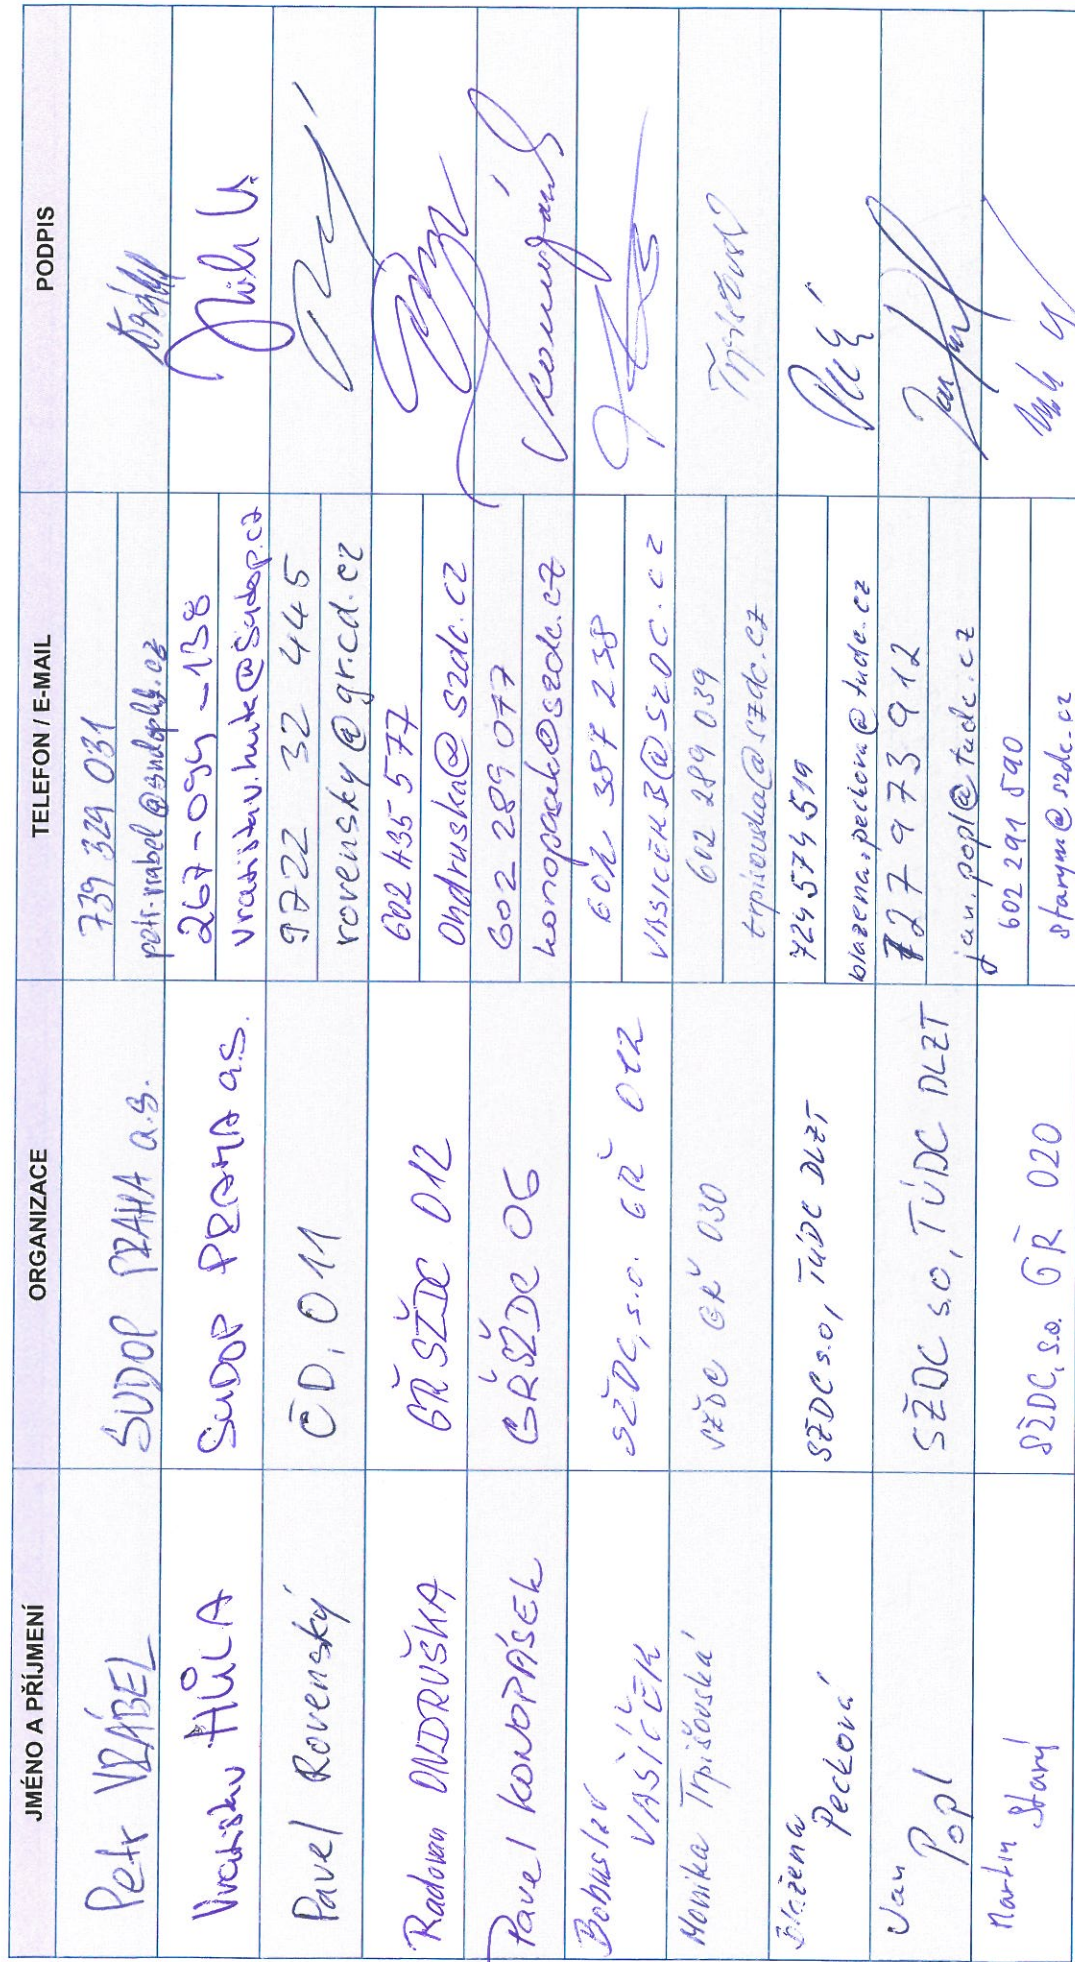 JMÉNO A PŘÍJMENÍ ORGANIZACE TELEFON / E-MAIL PODPIS
Petr VRÁBEL SUDOP PRAHA a.s. 739 329 031
Vratislav HŮLA SUDOP PRAHA a.s. 267-094-138
Pavel Rovenský ČD, 011 9722 32 445
rovensky@gr.cd.cz
Radovan ONDRUŠKA GŘ SŽDC 012 602 435 577
Ondruska@szdc.cz
Pavel KONOPÁSEK GŘ SŽDC 06 602 289 077
konopasek@szdc.cz
Bohuslav SŽDC, s.o. GŘ 012 602 387 238
VAŠÍČEK VASICEKB@SZDC.CZ
Monika Trpišovská SŽDC GŘ 030 602 289 039
trpisovska@szdc.cz
Blažena SŽDC s.o, TÚDC DLZT 724 574 519
Pecková blazena.peckova@tudc.cz
Jan SŽDC s.o, TÚDC DLZT 727 973 912
Popl jan.popl@tudc.cz
Martin SŽDC, s.o. GŘ 020 602 291 590
Starý starym@szdc.cz